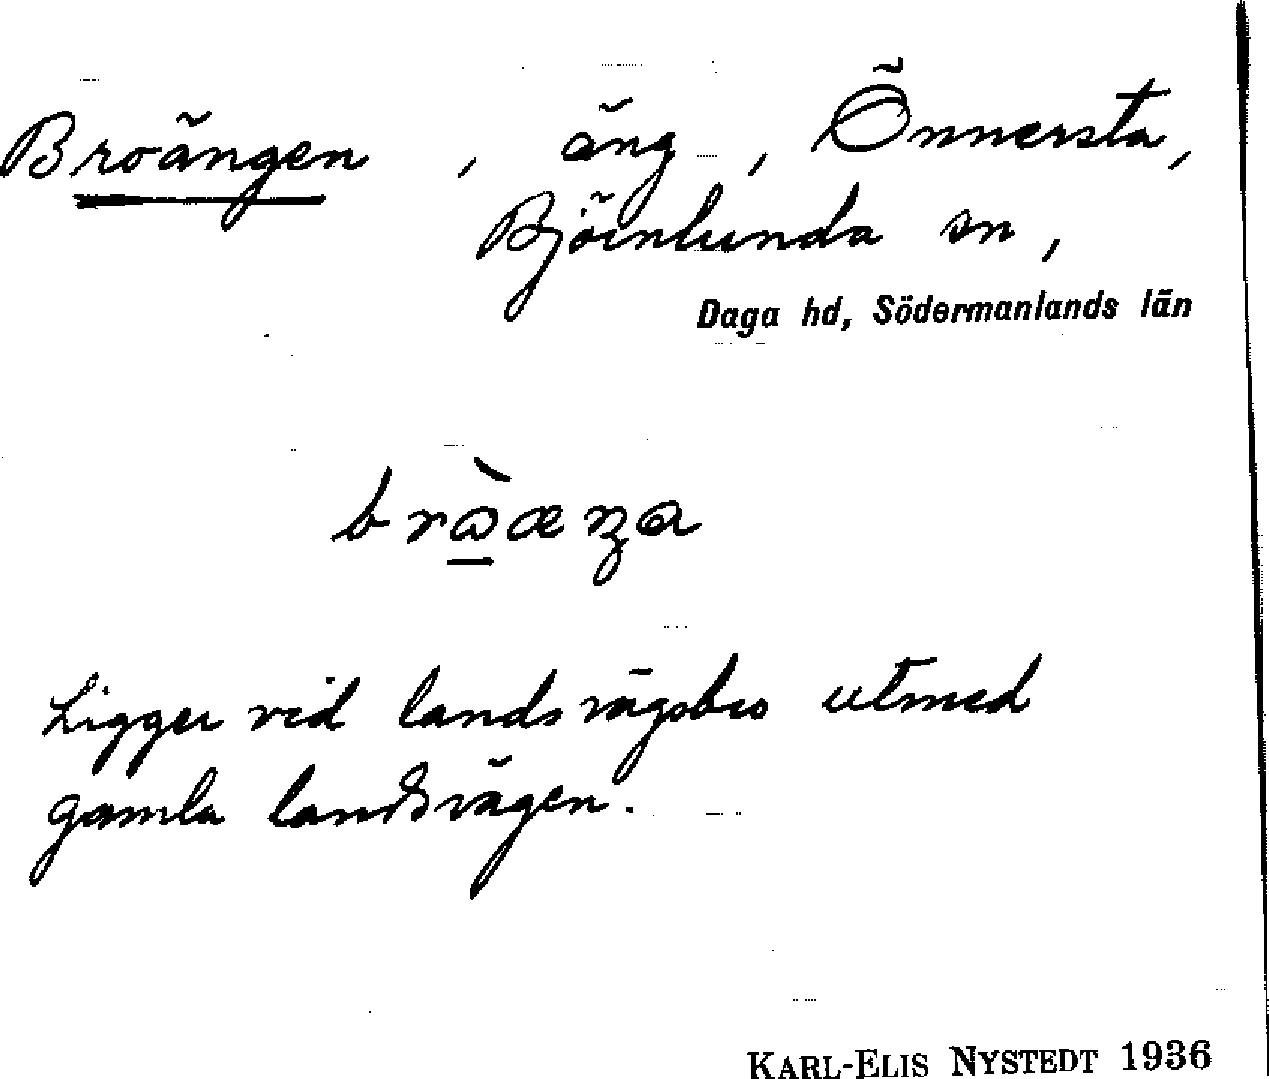 Broängen , äng , Önnersta,
Björnlunda sn,
Daga hd, Södermanlands län
Ligger vid landsvägsbro utmed
gamla landsvägen.
KARL-ELIS NYSTEDT 1936